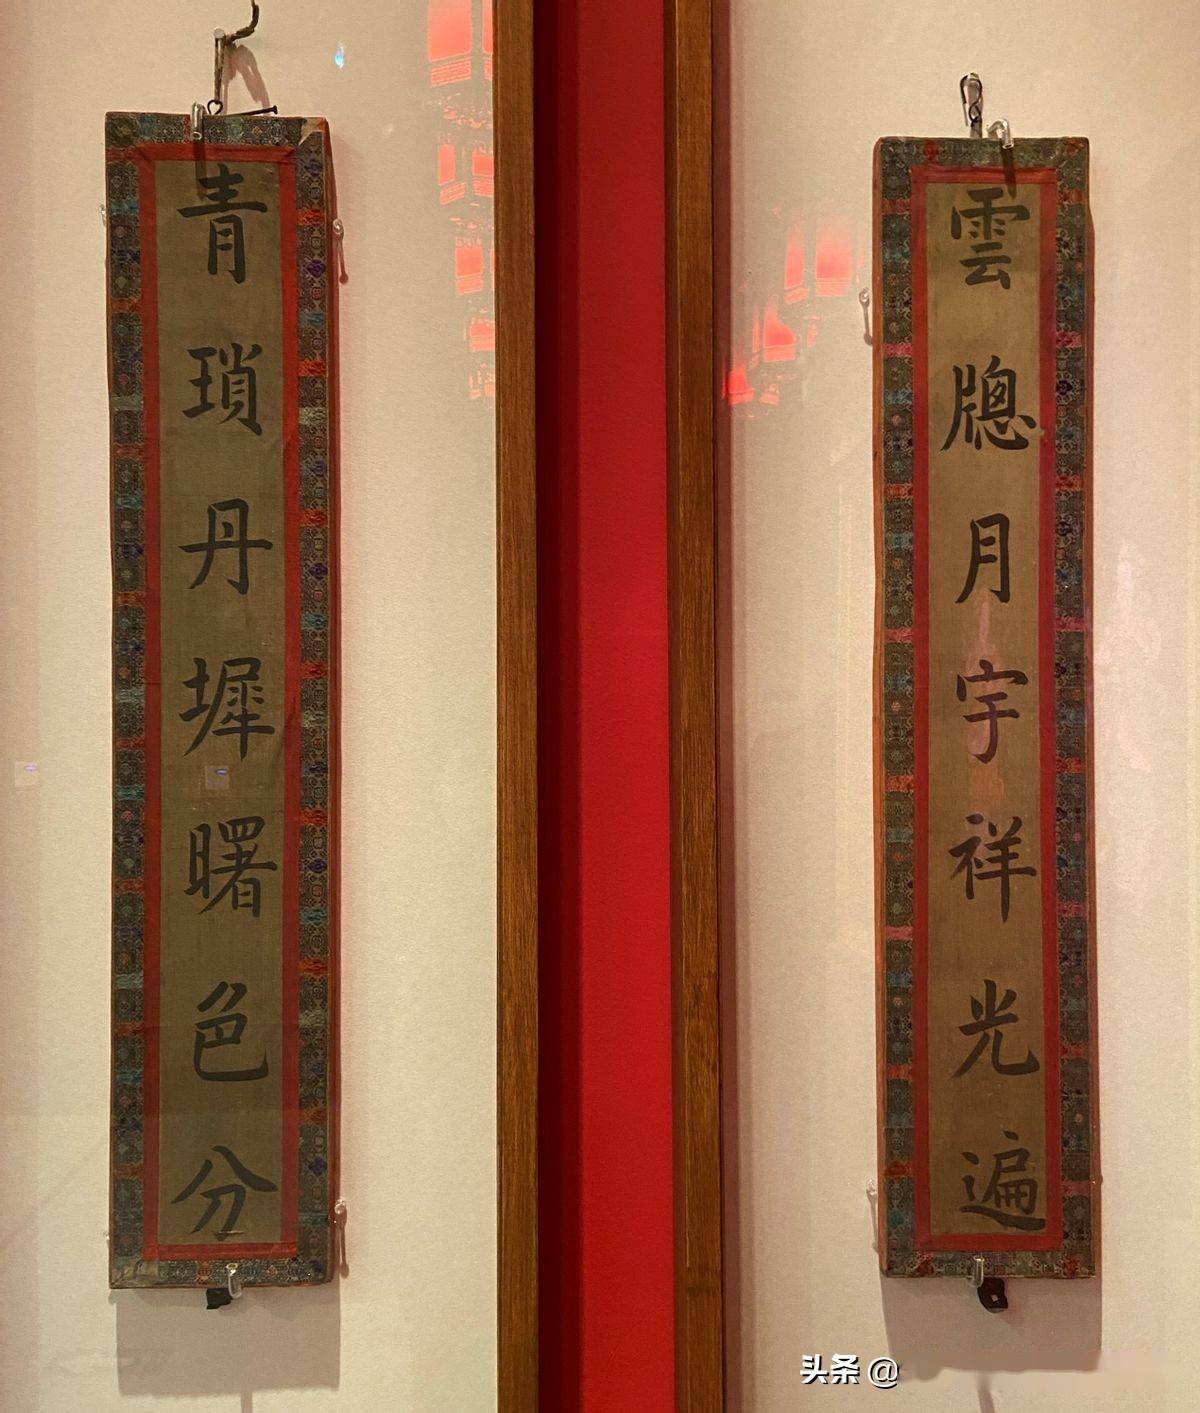 雲牕月宇祥光遍
青瑣丹墀曙色分
头条 @